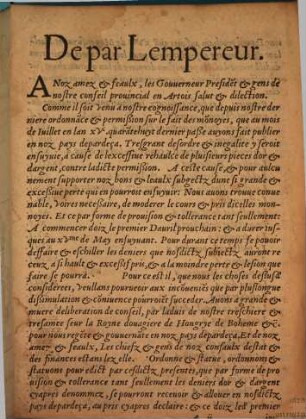 De par Lempereur.
A Noz amez & feaulx, les Gouuerneur Presidēt & gens de
nostre conseil prouincial en Artois salut & dilection.
Comme il soit venu a nostre cognoissance, que depuis nostre der
niere ordonnāce & permission sur le fait des mōnoyes, que au mois
de Iuillet en lan xv. quarātehuyt dernier passe auyons fait publier
en noz pays depardeça, Tresgrant desordre & inegalite y seroit
ensuyuie, a cause de lexcessif rehaulce de plusieurs pieces dor &
dargent, contre ladicte permission. A ceste cause & pour aulcu
nement supporter noz bons & loeaulx subgectz dune si grande
& excessiue perte qui en pourroit ensuyuir: Nous auons trouue conue
nable, voires necessaire, de moderer le cours & pris dicelles mon-
noyes. Et ce par forme de prouision & tollerance tant seullement:
A commencer doiz le premier Dauril prouchain: & a durer ius-
ques au xvme. de May ensuyuant. Pour durant ce temps se pouoir
deffaire & eschiller les deniers que nosdictz subiectz auront re
ceuz a si hault & excessif pris, & a la moindre perte & lesion que
faire se pourra. Pour ce est il, que nous les choses dessusd.
considerées, veullans pourueoir aux incōueniēs que par plus longue
dissimulation & cōniuence pourroiēt succeder. Auons a grande &
meure deliberation de conseil, par laduis de nostre treschiere &
tresamée seur la Royne douagiere de Hungrye de Boheme &c.
pour nous regēte & gouuernāte en noz pays depardeça, Et de noz
ame & feaulx, Les chiefz & gens de noz consaulx destat &
des finances estans lez elle. Ordonne & statue, ordonnons &
statuons pour edict par cesdictz presentes, que par forme de pro
uision & tollerance tant seullement les deniers dor & dargent
cyapres denommez, se pourront receuoir & allouer en nosdictz
pays depardeça, au pris cyapres declaire: & ce doiz led. premier